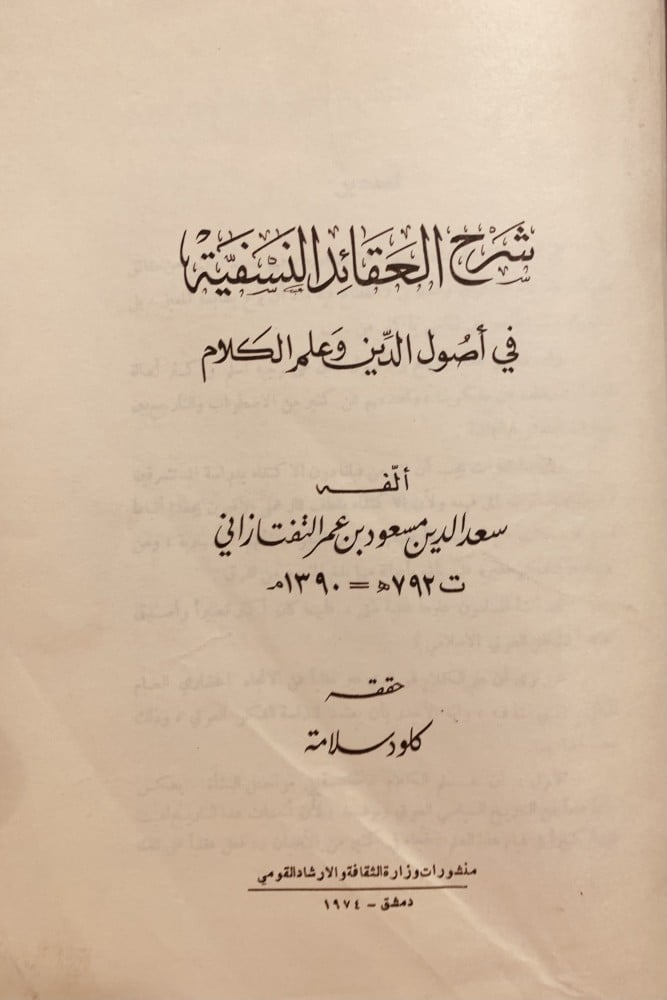 شرح العقائد النسفية
في أصول الدين وعلم الكلام
ألّفه
سعد الدين مسعود بن عمر التفتازاني
ت ٧٩٢ه = ١٣٩٠م
حققه
كلود سلامة
منشورات وزارة الثقافة والارشاد القومي
دمشق - ١٩٧٤